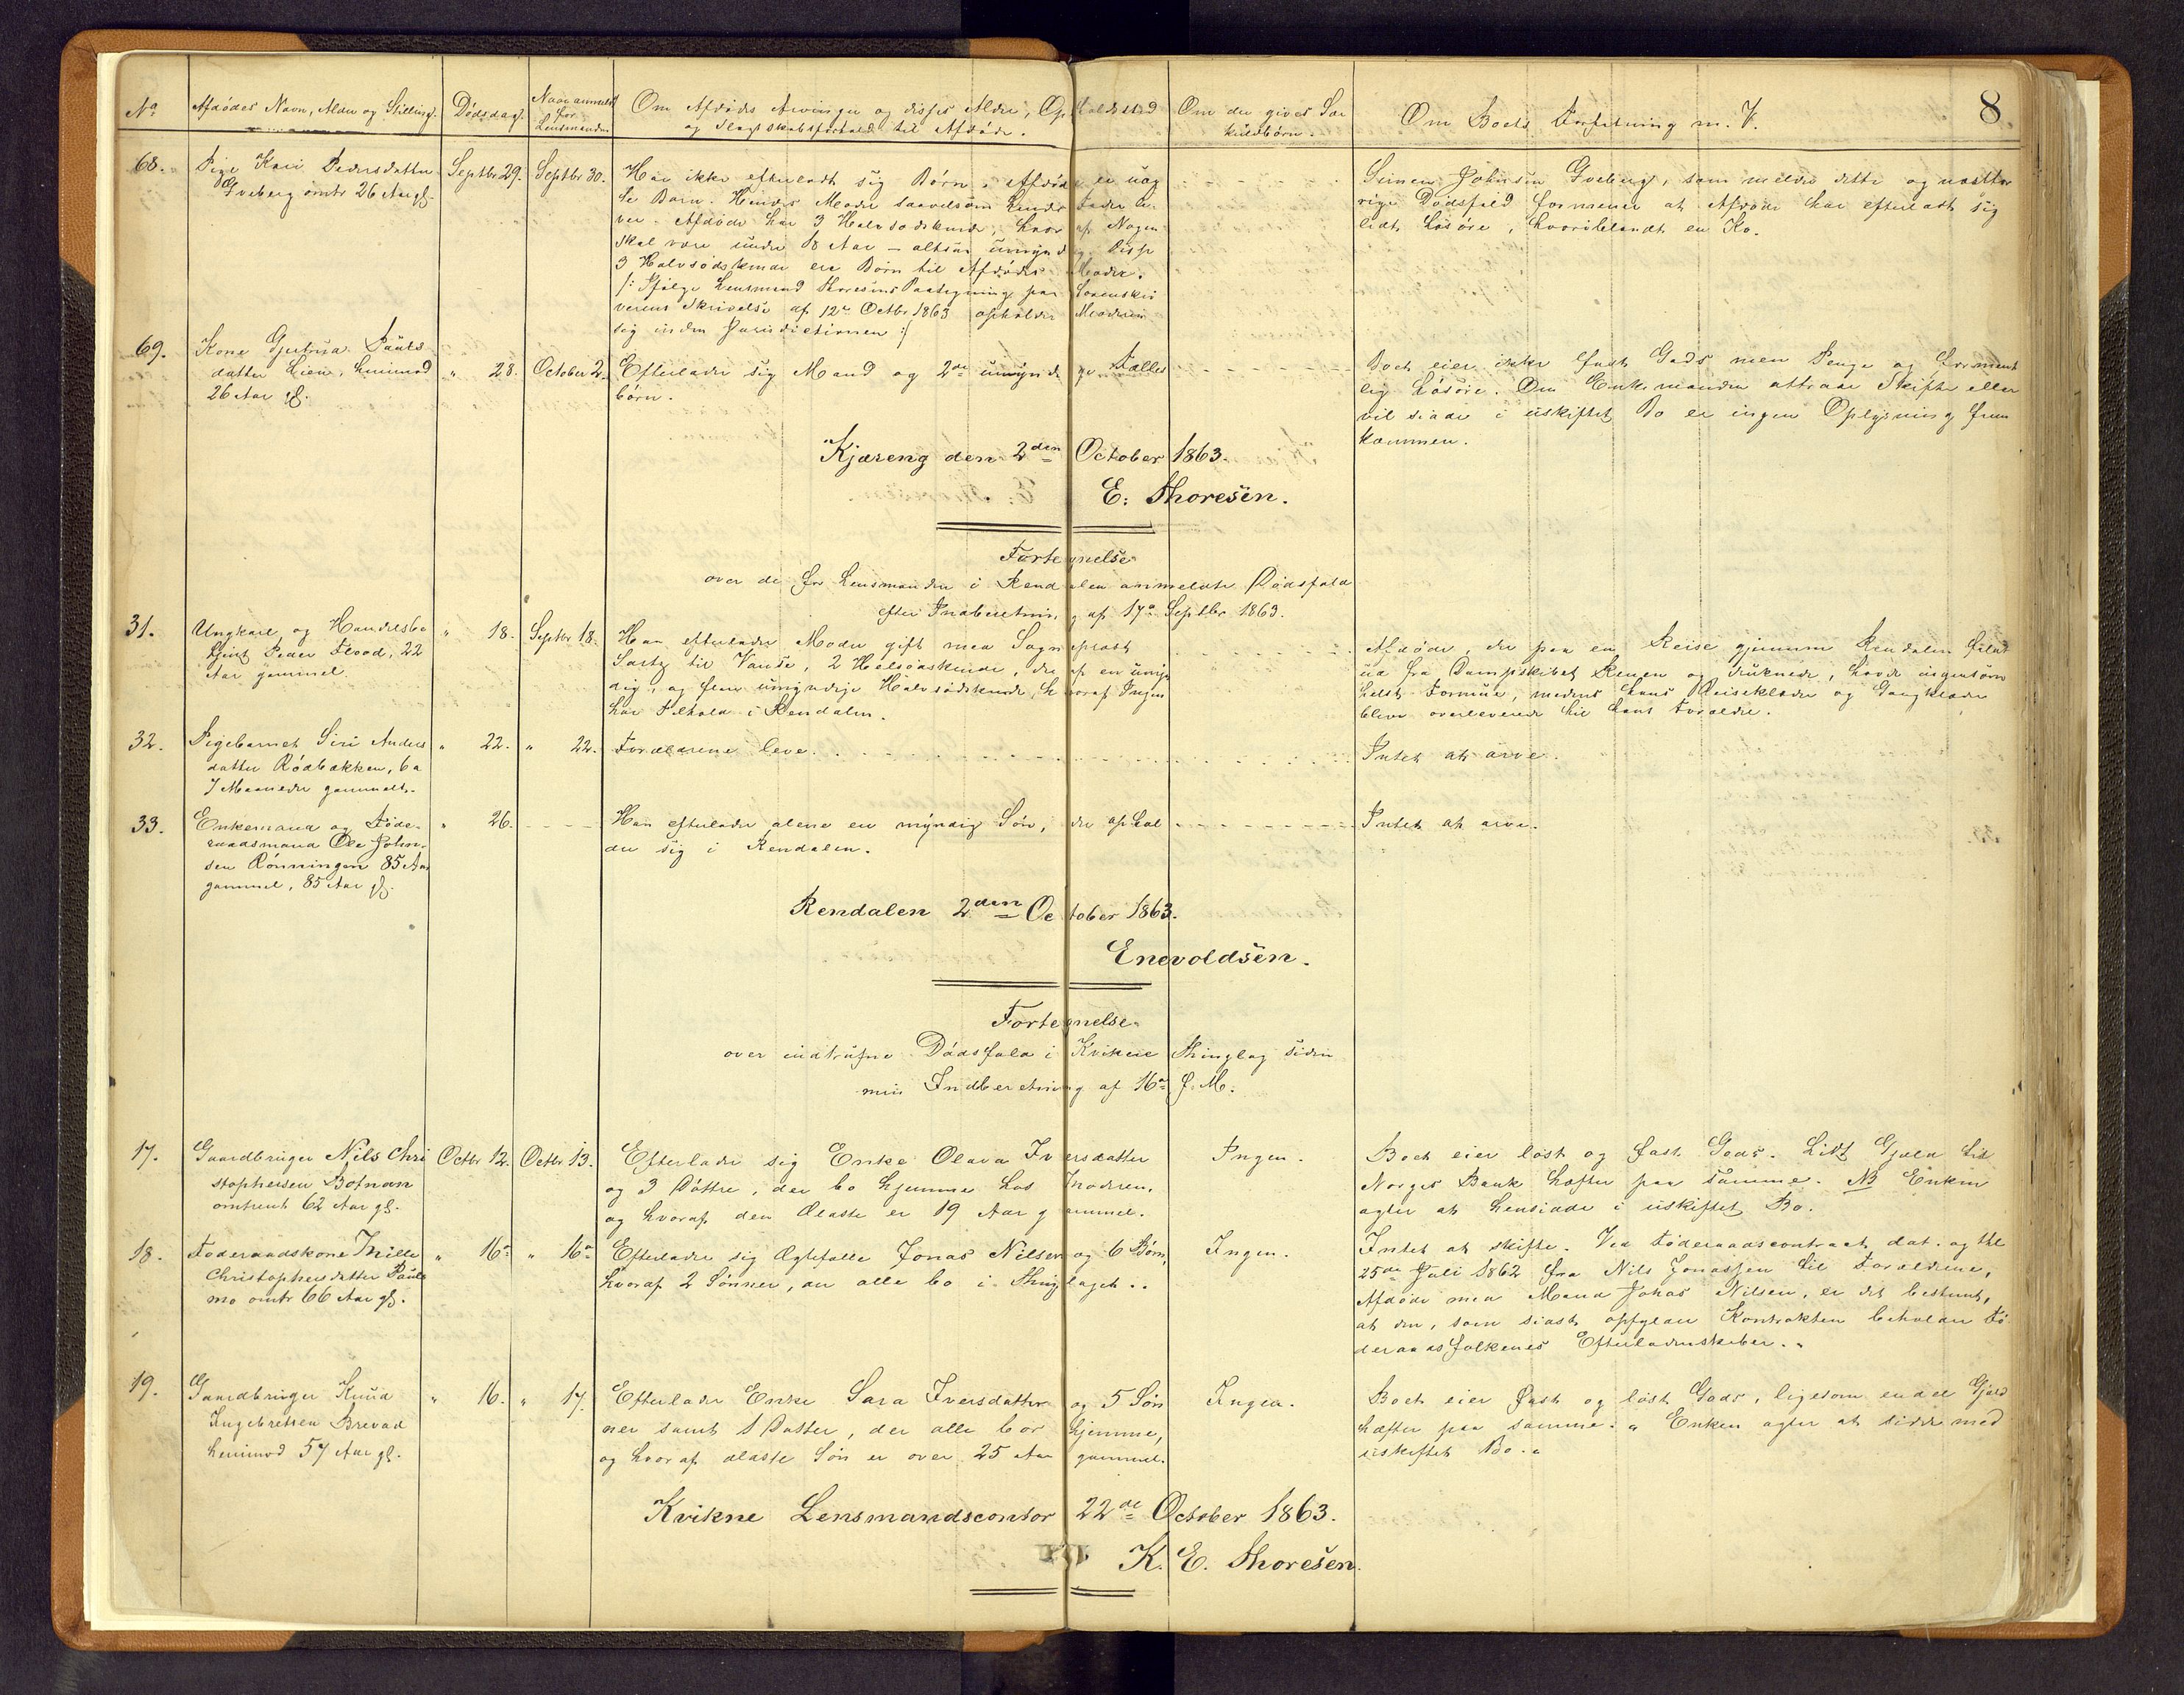 8
No
Afdødes Navn, Alder og Stilling.
Dødsdag.
Naar anmeldt
for
Lensmanden
Om Afdødes Arvinger og disses Alder, Opholdssted
og Slægtskabsforhold til Afdøde.
Om der gives Sær
kuldbørn.
Om Boets Forfatning m. V.
68.
Pige Kari Pedersdatter
Gveberg omtr 26 Aar gl.
Septbr 29.
Septbr 30.
Har ikke efterladt sig Børn. Afdøde er uæg
te Barn. Hendes Moder saavelsom hendes Fader le-
ver. Afdøde har 3 Halvsødskende, hvoraf Nogen
skal være under 18 Aar - altsaa umyndig. Disse
3 Halvsødskende ere Børn til Afdødes Moder.
/: Ifølge Lensmand Thoresens Paategning paa Sorenskri
verens Skrivelse af 12te Octbr 1863 opholder Moderen
sig inden Jurisdictionen :/
Simen Johnsen Gveberg, som melder dette
Dødsfald formener at Afdøde har efterladt sig
lidt Løsøre, hvoriblandt en Ko.
69.
Kone Gjertrud Pauls
datter Lien, henimod
26 Aar gl.
" 28.
October 2.
Efterlader sig Mand og 2de umyndige Fælles
børn.
Boet eier ikke fast Gods men Penge og forment
lig Løsøre. Om Enkemanden attraar Skifte eller
vil sidde i uskiftet Bo er ingen Oplysning frem
kommen.
Kjæreng den 2den October 1863.
E. Thoresen.
Fortegnelse
over de for Lensmanden i Rendalen anmeldte Dødsfald
efter Indberetning af 17de Septbr 1863.
31.
Ungkarl og Handelsbe
tjent Peder Flood, 22
Aar gammel.
" 18.
Septbr 18.
Han efterlader Moder gift med Sogneprest
Sartz til Vanse, 2 Helsødskende, der af en umyn
dig, og flere umyndige Halvsødskende, hvoraf Ingen
har Tilhold i Rendalen.
Afdøde, der paa en Reise gjennem Rendalen faldt
ud fra Dampskibet Renen og druknede, havde ingensom
helst Formue, medens hans Reiseklæder og Gangklæder
bleve overleverede til hans Forældre.
32.
Pigebarnet Siri Anders
datter Rødbækken, 6 a
7 Maaneder gammelt.
" 22.
" 22.
Forældrene leve.
Intet at arve.
33.
Enkemand og Føde-
raadsmand Ole John-
sen Rønningen 85 Aar
gammel, 85 Aar gl.
" 26.
Han efterlader alene en myndig Søn, der ophol
der sig i Rendalen.
Intet at arve.
Rendalen 2den October 1863.
Enevoldsen.
Fortegnelse
over indtrufne Dødsfald i Kvikne Thinglag siden
min Indberetning af 16de f. M.
17.
Gaardbruger Nils Chri
stophersen Botnan
omtrent 62 Aar gl.
Octbr 12.
Octbr 13.
Efterlader sig Enke Olava Iversdatter
og 3 Døttre, der bo hjemme hos Moderen,
og hvoraf den Ældste er 19 Aar gammel.
Ingen.
Boet eier løst og fast Gods. Lidt Gjæld til
Norges Bank hæfter paa samme. NB Enken
agter at hensidde i uskiftet Bo.
18.
Føderaadskone Thille
Christophersdatter Pauls
mo omtr 66 Aar gl.
" 16de
" 16de
Efterlader sig Ægtefælle Jonas Nilsen og 6 Børn,
hvoraf 2 Sønner, der alle bo i Thinglaget.
Ingen.
Intet at skifte. Ved Føderaadscontract dat. og thl
25de Juli 1862 fra Nils Jonassen til Forældrene,
Afdøde med Mand Jonas Nilsen, er det bestemt,
at den, som sidst opfylder Kontrakten beholder Fø
deraadsfolkenes Efterladenskaber.
19.
Gaardbruger Knud
Ingebretsen Brevad
henimod 57 Aar gl.
" 16.
" 17.
Efterlader Enke Sara Iversdatter og 5 Søn
ner samt 1 Datter, der alle bor hjemme,
og hvoraf ældste Søn er over 25 Aar gammel.
Ingen.
Boet eier fast og løst Gods, ligesom endel Gjæld
hæfter paa samme. " Enken agter at sidde med
uskiftet Bo. "
Kvikne Lensmandscontor 22de October 1863.
K. E. Thoresen.